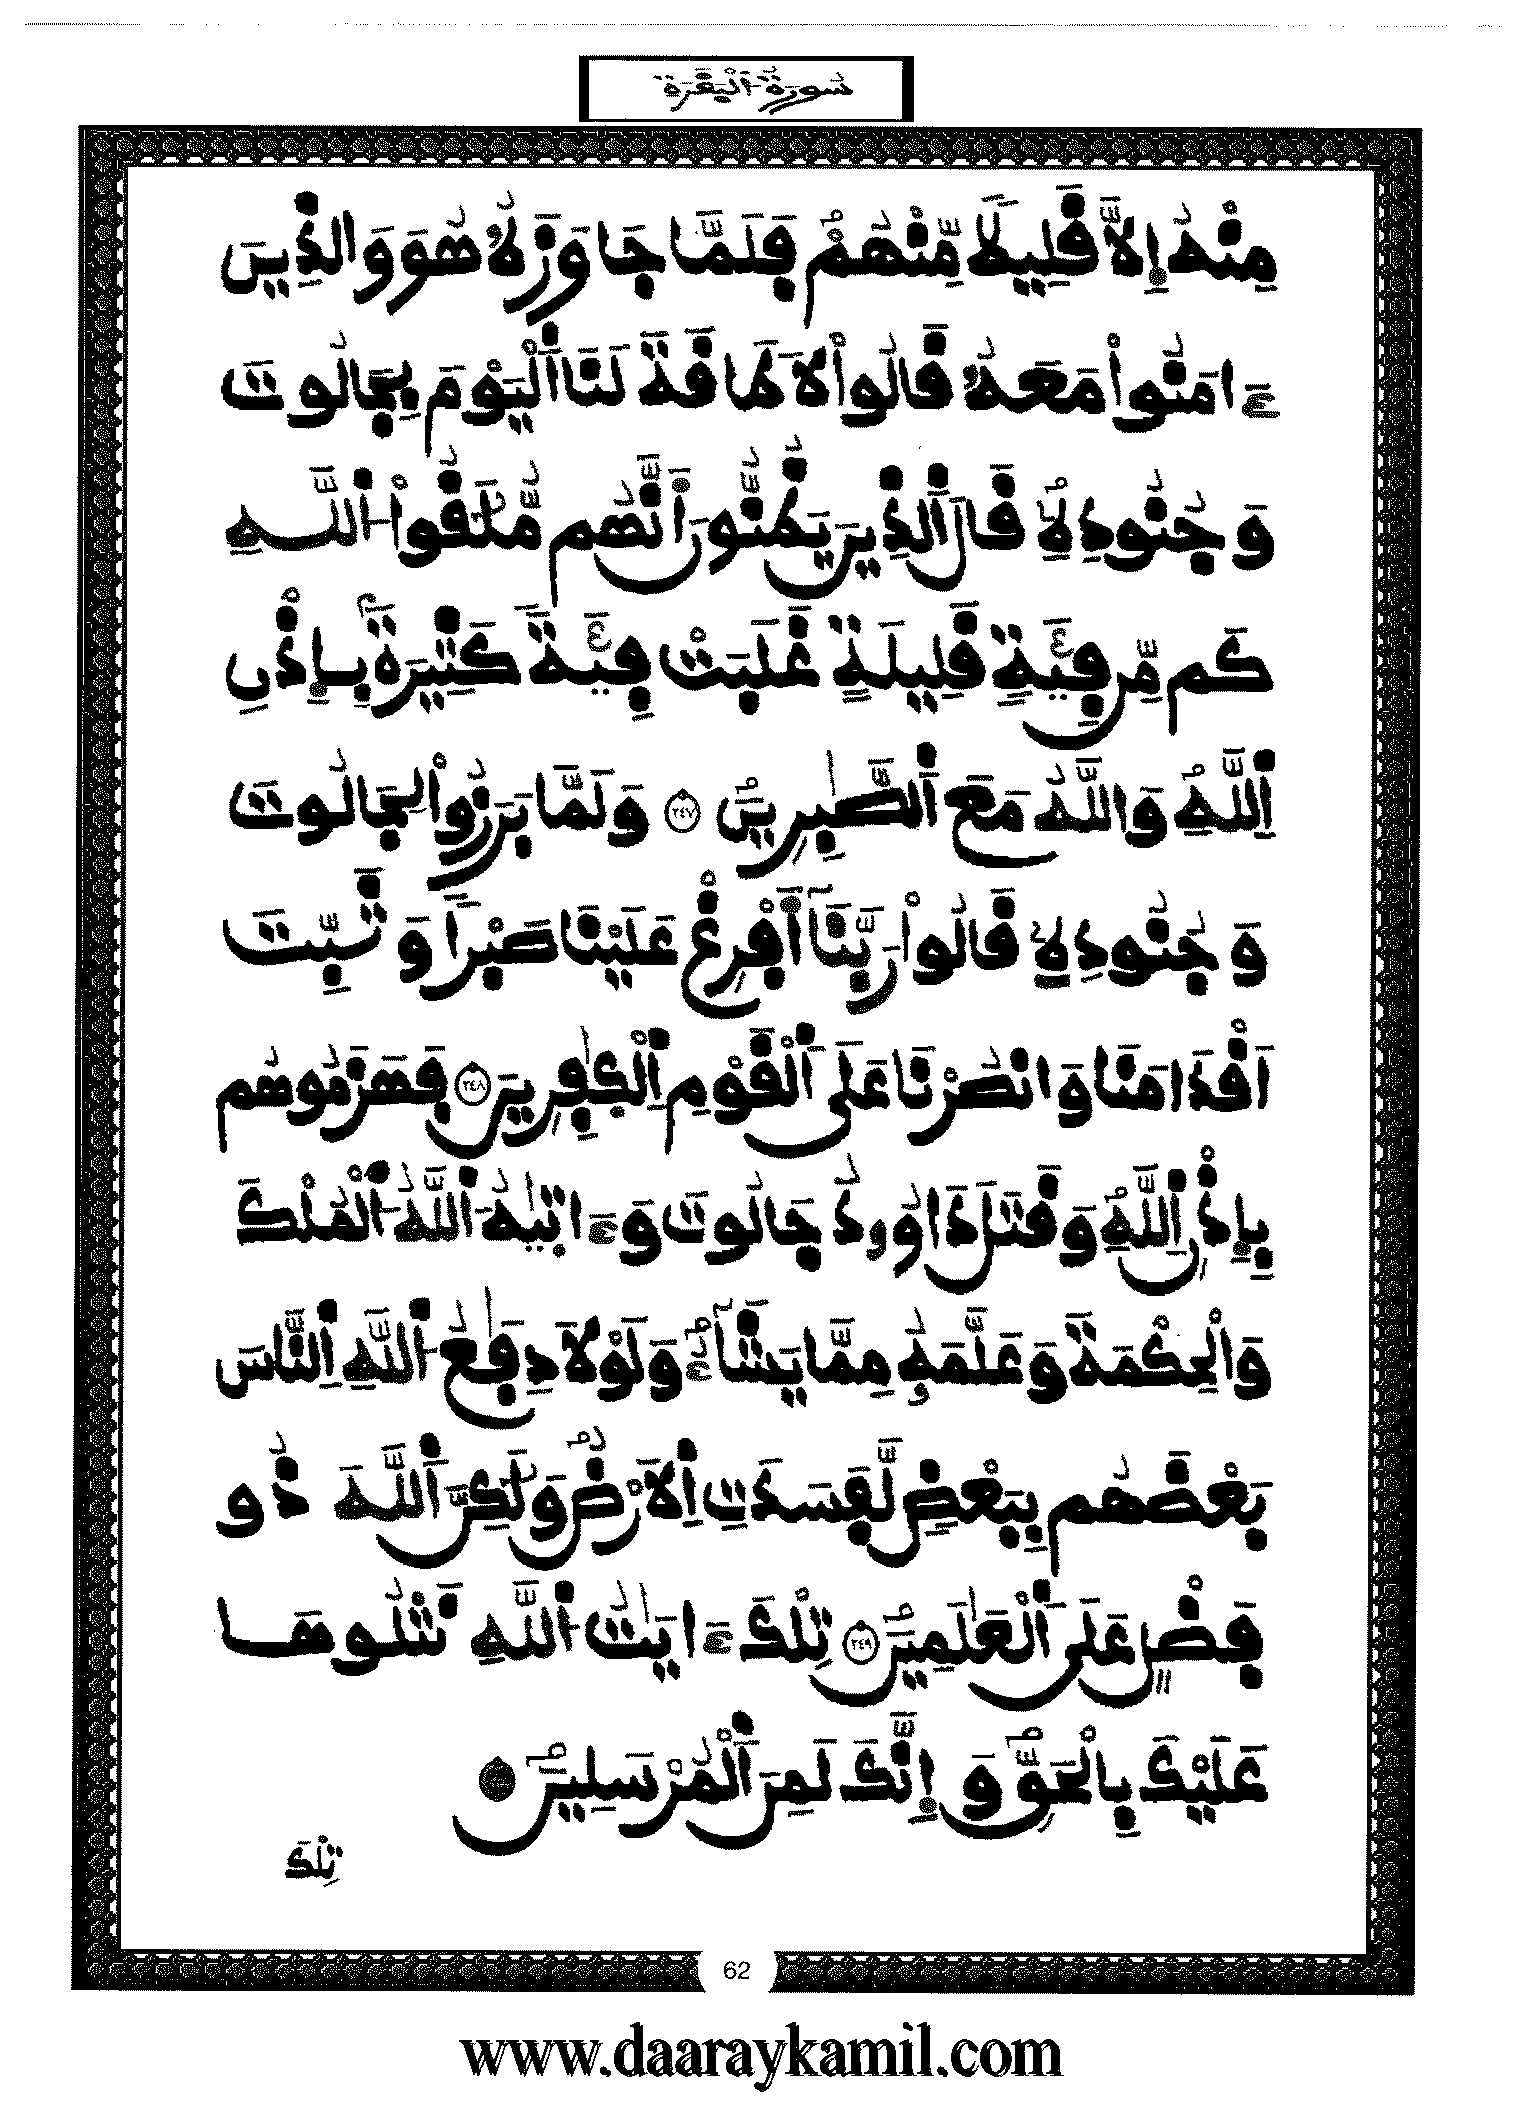 سُورَةُ اَ۬لْبَقَرَةِ
مِنْهُ إِلَّا قَلِيلاٗ مِّنْهُمْۖ فَلَمَّا جَاوَزَهُۥ هُوَ وَالذِينَ
ءَامَنُواْ مَعَهُۥ قَالُواْ لَا طَاقَةَ لَنَا اَ۬لْيَوْمَ بِجَالُوتَ
وَجُنُودِهِۦۖ قَالَ اَ۬لذِينَ يَظُنُّونَ أَنَّهُم مُّلَٰقُواْ اُ۬للَّهِ
كَم مِّن فِئَةٖ قَلِيلَةٍ غَلَبَتْ فِئَةٗ كَثِيرَةَۢ بِإِذْنِ
اِ۬للَّهِۖ وَاللَّهُ مَعَ اَ۬لصَّٰبِرِينَۖ ٢٤٧ وَلَمَّا بَرَزُواْ لِجَالُوتَ
وَجُنُودِهِۦ قَالُواْ رَبَّنَآ أَفْرِغْ عَلَيْنَا صَبْراٗ وَثَبِّتَ
اَقْدَامَنَا وَانصُرْنَا عَلَى اَ۬لْقَوْمِ اِ۬لْكٰ۪فِرِينَ ٢٤٨ فَهَزَمُوهُم
بِإِذْنِ اِ۬للَّهِۖ وَقَتَلَ دَاوُۥدُ جَالُوتَ وَءَات۪يٰهُ اُ۬للَّهُ اُ۬لْمُلْكَ
وَالْحِكْمَةَ وَعَلَّمَهُۥ مِمَّا يَشَآءُۖ وَلَوْلَا دِفَٰعُ اُ۬للَّهِ اِ۬لنَّاسَ
بَعْضَهُم بِبَعْضٖ لَّفَسَدَتِ اِ۬لَارْضُۖ وَلَٰكِنَّ اَ۬للَّهَ ذُو
فَضْلٍ عَلَى اَ۬لْعَٰلَمِينَۖ ٢٤٩ تِلْكَ ءَايَٰتُ اُ۬للَّهِ نَتْلُوهَا
عَلَيْكَ بِالْحَقِّۖ وَإِنَّكَ لَمِنَ اَ۬لْمُرْسَلِينَۖ
تِلْكَ
62
www.daaraykamil.com